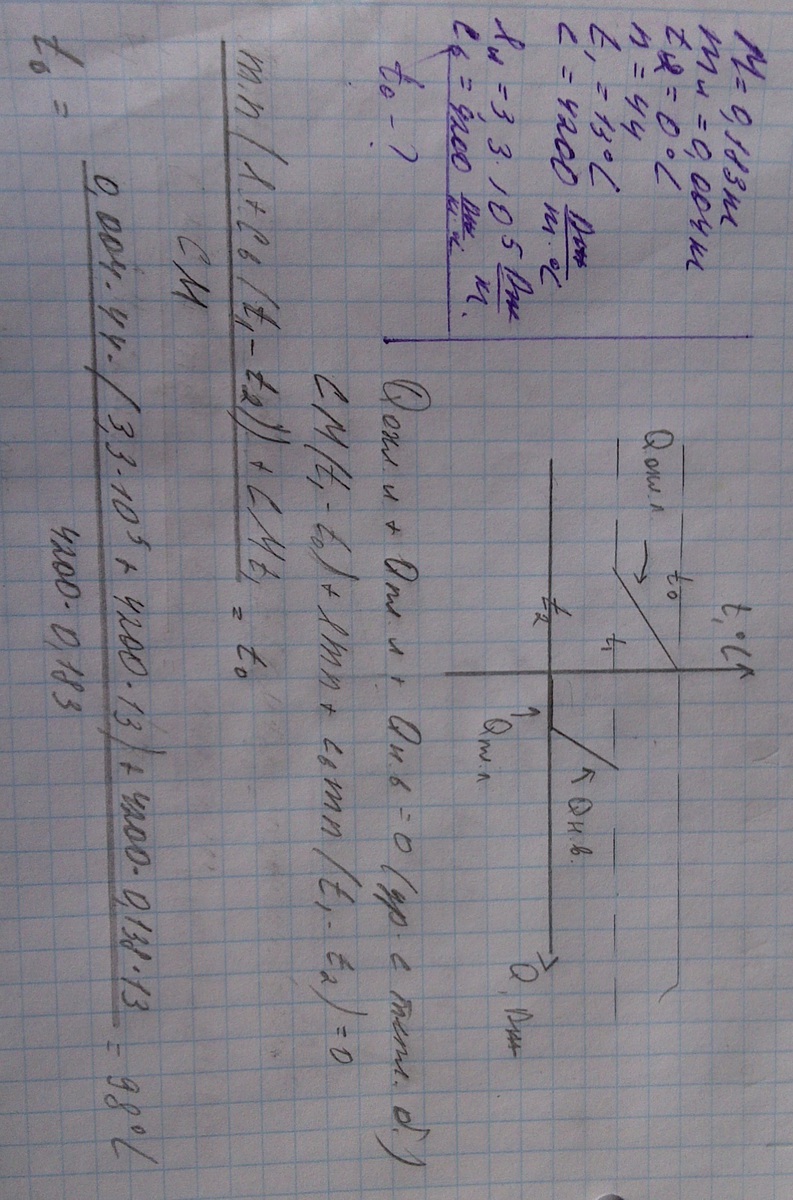 M = 0,183 кг
m л = 0,004 кг
t2 = 0°C
n = 44
t1 = 13°C
c = 4200 Дж/кг·°C
λл = 3,3·10⁵ Дж/кг
cв = 4200 Дж/кг·°C
t0 - ?
t, °C
t0
Qохл.
t1
Qн.в.
t2
Qпл.л
Q, Дж
Qохл + Qпл л + Qн.в = 0 (ур. с тепл. б.)
CM(t1 - t0) + λmn + cвmn(t1 - t2) = 0
m·n(λ + cв(t1 - t2)) + CMt1 / CM = t0
t0 = 0,004·44·(3,3·10⁵ + 4200·13) + 4200·0,138·13 / 4200·0,183 = 98°C